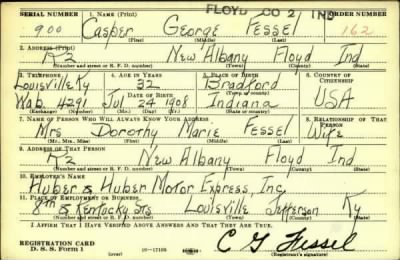 FLOYD CO 2 IND
SERIAL NUMBER 1. NAME (Print) ORDER NUMBER
900 Casper George Fessel 162
(First) (Middle) (Last)
2. ADDRESS (Print)
R2 New Albany Floyd Ind
(Number and street or R. F. D. number) (Town) (County) (State)
3. TELEPHONE 4. AGE IN YEARS 5. PLACE OF BIRTH 6. COUNTRY OF CITIZENSHIP
Louisville Ky 32 Bradford
DATE OF BIRTH (Town or county)
Wab. 4291 Jul 24 1908 Indiana USA
(Exchange) (Number) (Mo.) (Day) (Yr.) (State or country)
7. NAME OF PERSON WHO WILL ALWAYS KNOW YOUR ADDRESS 8. RELATIONSHIP OF THAT PERSON
Mrs Dorothy Marie Fessel Wife
(Mr., Mrs., Miss) (First) (Middle) (Last)
9. ADDRESS OF THAT PERSON
R2 New Albany Floyd Ind
(Number and street or R. F. D. number) (Town) (County) (State)
10. EMPLOYER'S NAME
Huber & Huber Motor Express, Inc.
11. PLACE OF EMPLOYMENT OR BUSINESS
8th & Kentucky Sts Louisville Jefferson Ky
(Number and street or R. F. D. number) (Town) (County) (State)
I AFFIRM THAT I HAVE VERIFIED ABOVE ANSWERS AND THAT THEY ARE TRUE.
C G Fessel
REGISTRATION CARD
D. S. S. FORM 1 (over) (Registrant's signature)